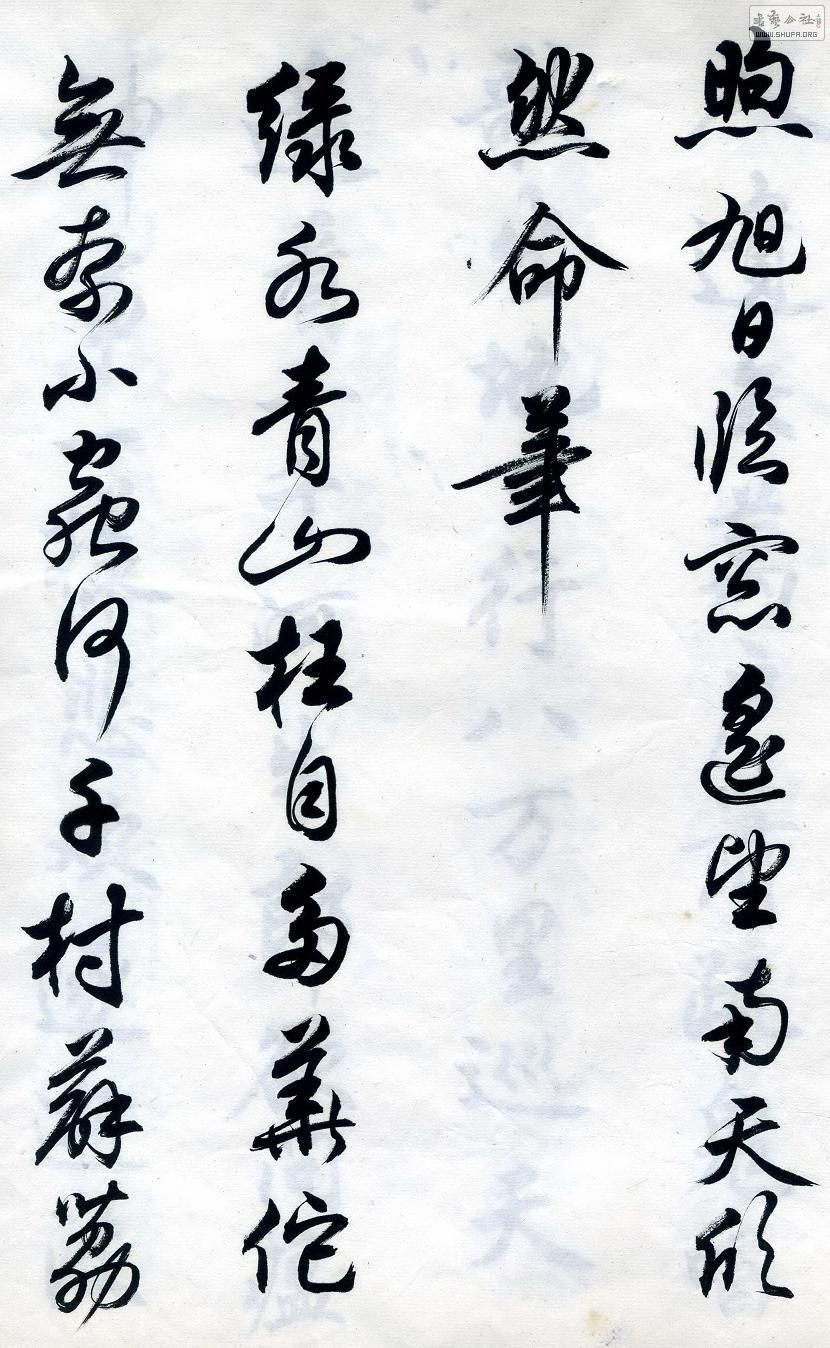 煦旭日臨窓遙望南天欣
然命筆
緑水青山枉自多華佗
無奈小蟲何千村薜荔
書藝公社
WWW.SHUFA.ORG